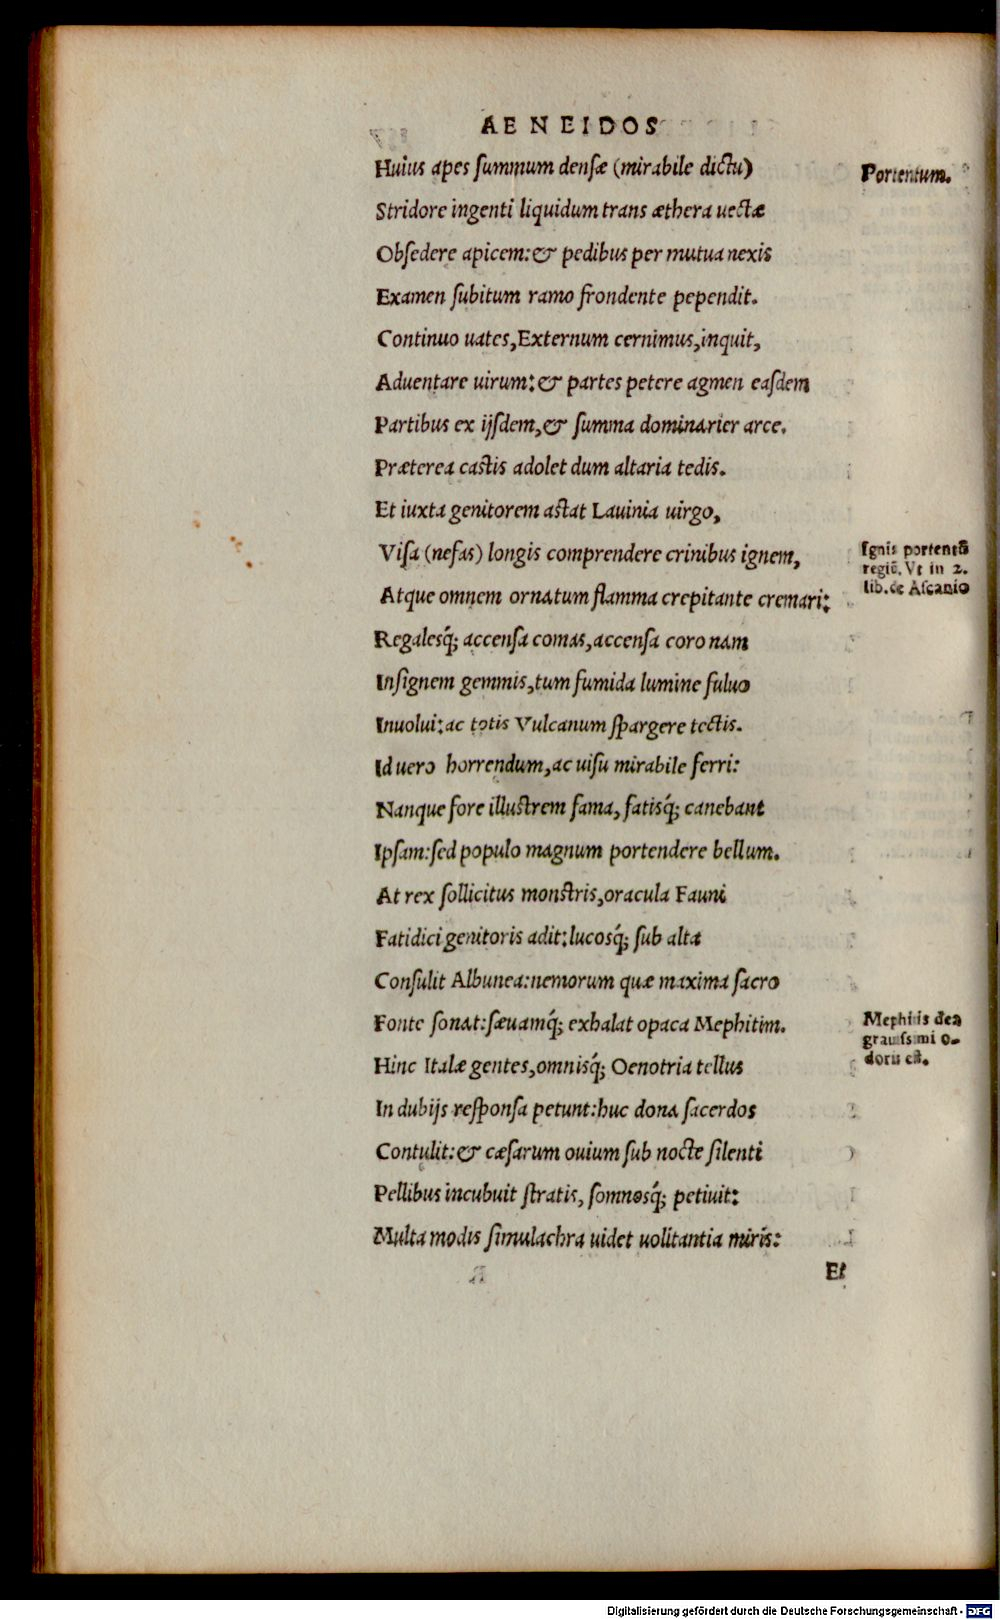 AENEIDOS
Huius apes ſummum denſæ (mirabile dictu)
Stridore ingenti liquidum trans æthera uectæ
Obſedere apicem: & pedibus per mutua nexis
Examen ſubitum ramo frondente pependit.
Continuo uates, Externum cernimus, inquit,
Aduentare uirum: & partes petere agmen eaſdem
Partibus ex ijſdem, & ſumma dominarier arce.
Præterea caſtis adolet dum altaria tedis.
Et iuxta genitorem aſtat Lauinia uirgo,
Viſa (nefas) longis comprendere crinibus ignem,
Atque omnem ornatum flamma crepitante cremari:
Regalesq́; accenſa comas, accenſa coronam
Inſignem gemmis, tum fumida lumine fuluo
Inuolui: ac totis Vulcanum ſpargere tectis.
Id uero horrendum, ac uiſu mirabile ferri:
Nanque fore illuſtrem fama, fatisq́; canebant
Ipſam: ſed populo magnum portendere bellum.
At rex ſollicitus monſtris, oracula Fauni
Fatidici genitoris adit: lucosq́; ſub alta
Conſulit Albunea: nemorum quæ maxima ſacro
Fonte ſonat: ſæuamq́; exhalat opaca Mephitim.
Hinc Italæ gentes, omnisq́; Oenotria tellus
In dubijs reſponſa petunt: huc dona ſacerdos
Contulit: & cæſarum ouium ſub nocte ſilenti
Pellibus incubuit ſtratis, ſomnosq́; petiuit:
Multa modis ſimulachra uidet uolitantia miris:
Et
Portentum.
Ignis portentũ
regiũ. Vt in 2.
lib. de Aſcanio
Mephitis dea
grauiſsimi o-
doris eſt.
Digitalisierung gefördert durch die Deutsche Forschungsgemeinschaft - DFG